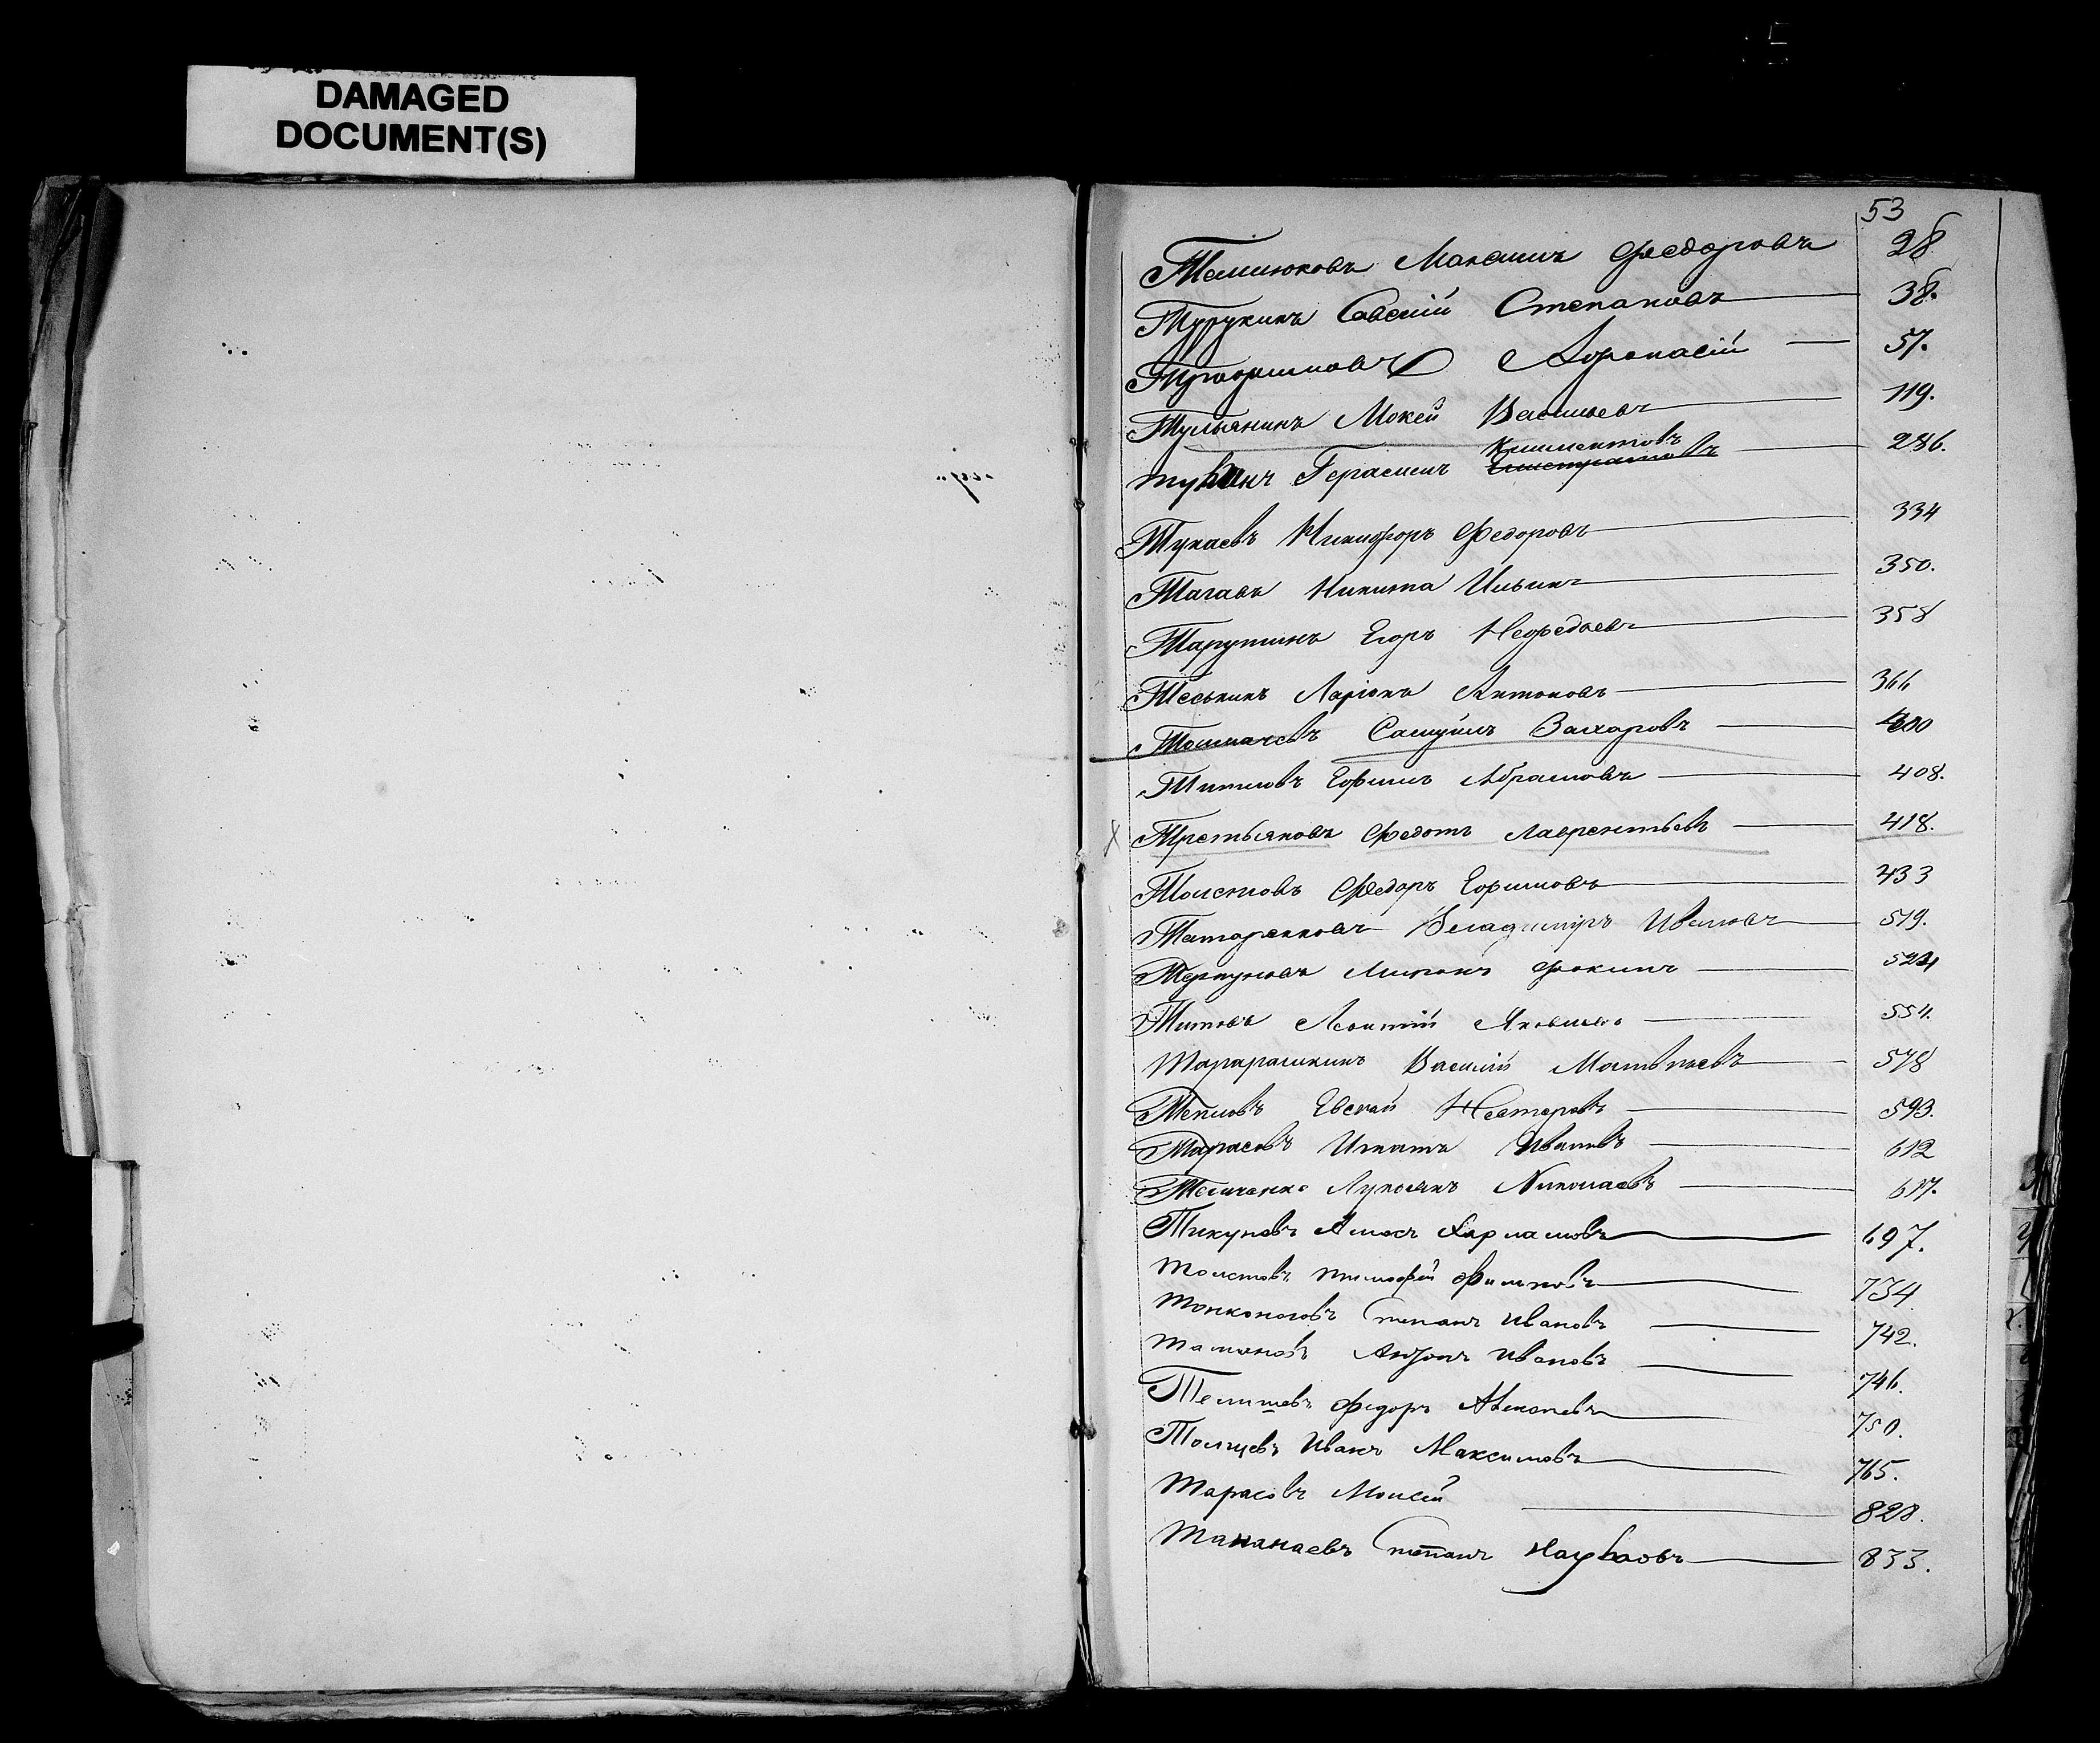 DAMAGED
DOCUMENT(S)
53
Максимъ Федоровъ 28
Турукинъ Савелій Степановъ 38.
Афонасій 57.
Тульянинъ Мокей Васильевъ 119.
Климентовъ
Герасимъ 286.
Тукаевъ Никифоръ Федоровъ 334
Тагавъ Никита Ильинъ 350.
Тарутинъ Егоръ Нефедьевъ 358
Теськинъ Ларіонъ Антоновъ 366
Толмачевъ Самуилъ Захаровъ 400
Титловъ Ефимъ Абрамовъ 408.
Третьяковъ Федотъ Лаврентьевъ 418.
Федоръ Ефимовъ 433
Владиміръ Ивановъ 519.
Терпуговъ Фокинъ 524
Титовъ Леонтій Яковлевъ 554.
Тарарашкинъ Василій Матвѣевъ 578
Тепловъ Евсей Нестеровъ 593.
Тарасовъ Игнатъ Ивановъ 612
Лукьянъ Николаевъ 617.
Тикуновъ Амосъ Харламовъ 697.
Толстовъ Тимофей Филиповъ 734
Тонконоговъ Степанъ Ивановъ 742.
Антонъ Ивановъ 746.
Телишевъ Федоръ Алексѣевъ 750.
Иванъ Максимовъ 765.
Тарасовъ Моисей 828.
Тананаевъ Степанъ Наумовъ 833.